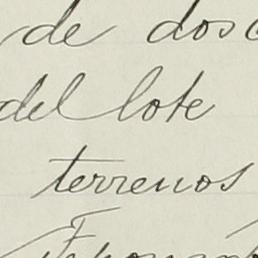 de dos
del lote
terrenos